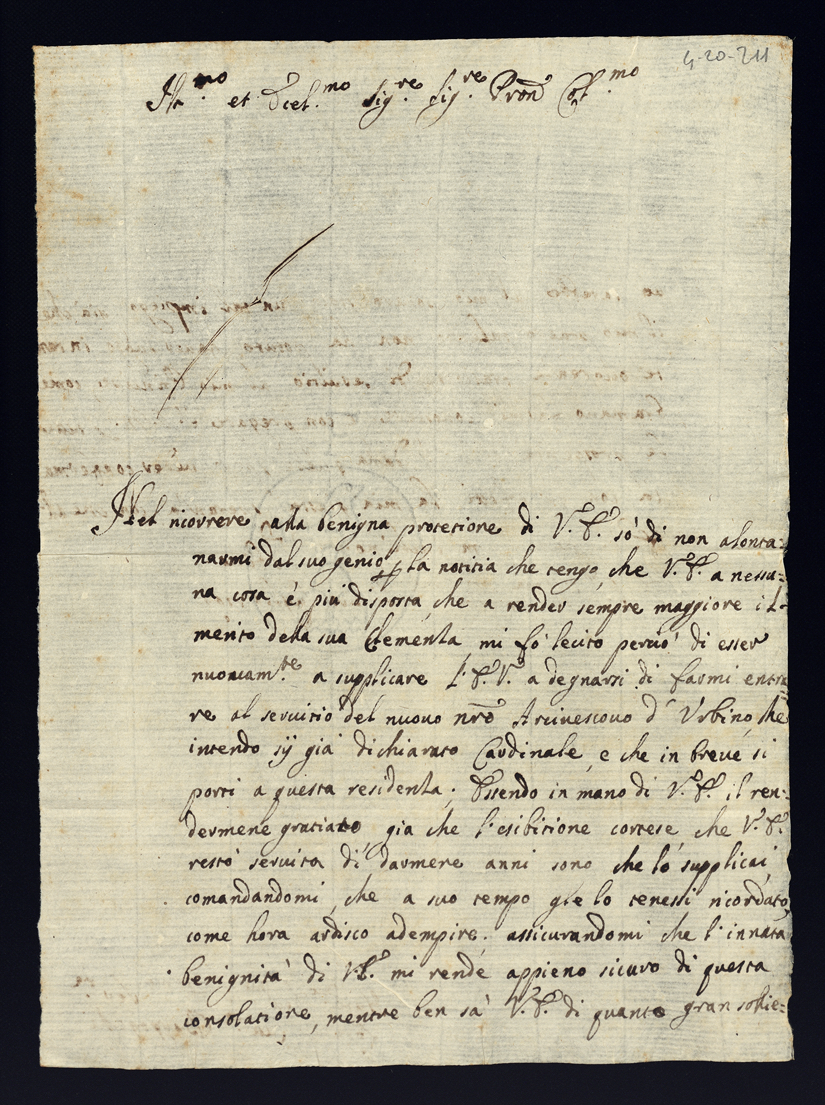 4-20-211
Ill.mo et Eccl.mo Sig.re Sig.re Pron Col.mo
Nel ricorrere alla benigna protetione di V.E. so' di non alonta:
narmi dal suo genio p la notitia che tengo, che V.E. a nessu=
na cosa è piu disposta, che a render sempre maggiore il
merito della sua Clementa, mi fo' lecito perciò di esser
nuovam.te a supplicare l'E.V. a degnarsi di farmi entra
re al servitio del nuovo nro Arcivescovo d' Urbino, che
intendo sij già dichiarato Cardinale, e che in breve si
porti a questa residenta; Essendo in mano di V.E. il ren:
dermene gratiato già che l'esibitione cortese che V.E.
restò servita di darmere anni sono che lo supplicai,
comandandomi, che a suo tempo gle lo tenessi ricordato,
come hora ardisco adempire; assicurandomi che l'innata
benignità di V.E. mi rende appieno sicuro di questa
consolatione, mentre ben sà V.E. di quanto gran sollie=